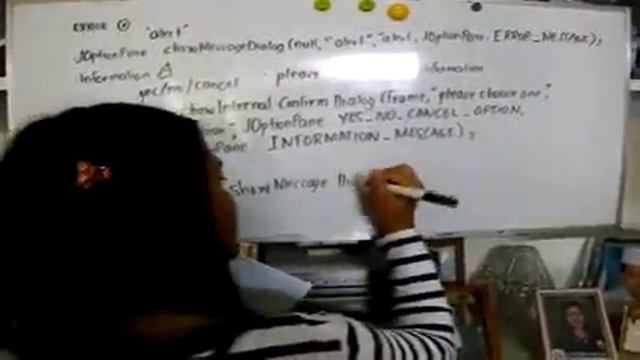 ERROR "alert"
JOptionPane showMessageDialog(null, "alert", "alert, JOptionPane. ERROR_MESSAGE);
Information
yes/no/cancel please information
how Internal Confirm Dialog (frame, "please choose one",
JOptionPane YES_NO_CANCEL_OPTION,
Pane INFORMATION_MESSAGE);
Show Message